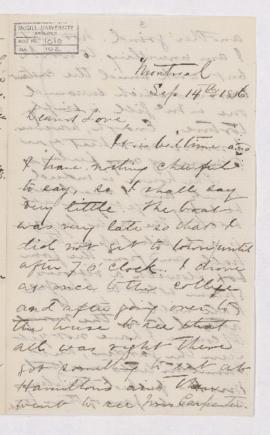 McGILL UNIVERSITY
ARCHIVES
ACC. NO. 1010
REF. 102
Montreal
Sep 14th 1886
Dearest Love
It is bedtime and
I have nothing cheerful
to say, so I shall say
very little. The boat
was very late so that I
did not get to town until
after 7 o'clock. I drove
at once to the college
and after going over to
the house to see that
all was right there
got something to eat at
Hamiltons and then
went to see Miss Carpenter.